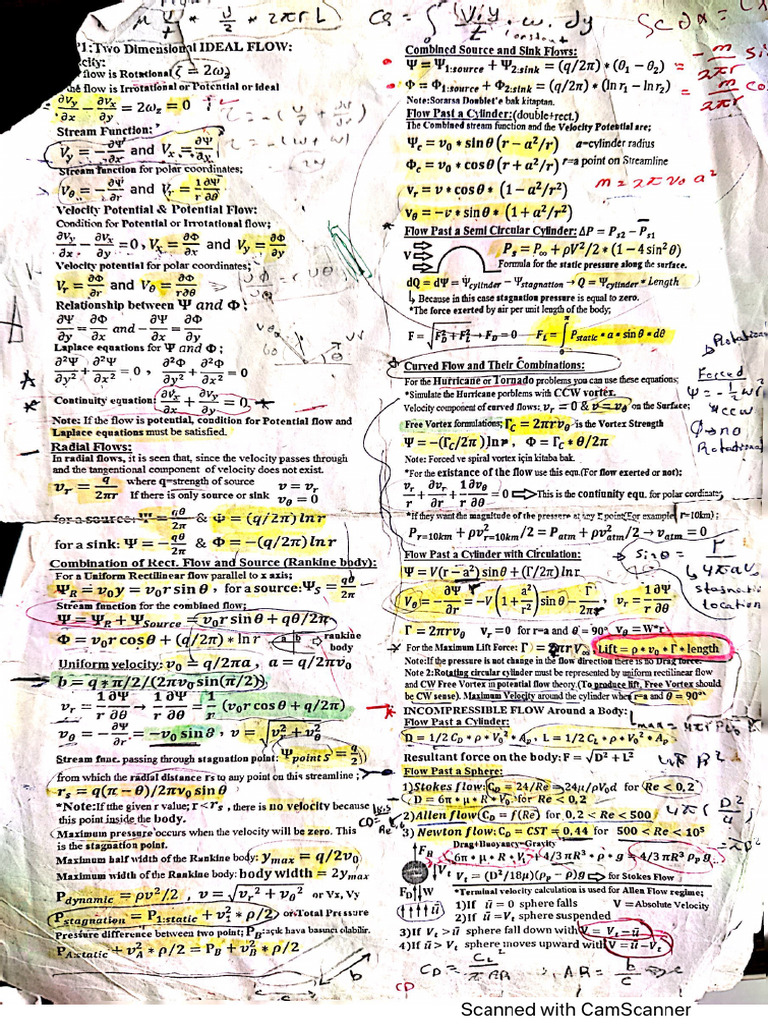 μ V/t * υ/2 * 2πrL
CQ = ∫₀ Vᵢy/t . w. dy
constant
P1:Two Dimensional IDEAL FLOW:
city:
flow is Rotational ζ = 2ω_z
the flow is Irrotational or Potential or Ideal
∂V_y/∂x − ∂V_x/∂y = 2ω_z = 0
Stream Function:
V_y = −∂Ψ/∂x and V_x = ∂Ψ/∂y
Stream function for polar coordinates;
V_θ = −∂Ψ/∂r and V_r = 1∂Ψ/r ∂θ
Velocity Potential & Potential Flow:
Condition for Potential or Irrotational flow;
∂V_y/∂x − ∂V_x/∂y = 0 , V_x = ∂Φ/∂x and V_y = ∂Φ/∂y
Velocity potential for polar coordinates;
V_r = ∂Φ/∂r and V_θ = ∂Φ/r∂θ
Relationship between Ψ and Φ ;
∂Ψ/∂y = ∂Φ/∂x and − ∂Ψ/∂x = ∂Φ/∂y
Laplace equations for Ψ and Φ ;
∂²Ψ/∂y² + ∂²Ψ/∂x² = 0 , ∂²Φ/∂y² + ∂²Φ/∂x² = 0
Continuity equation: ∂V_x/∂x + ∂V_y/∂y = 0
Note: If the flow is potential, condition for Potential flow and
Laplace equations must be satisfied.
Radial Flows:
In radial flows, it is seen that, since the velocity passes through
and the tangentional component of velocity does not exist.
v_r = q/2πr where q=strength of source v = v_r
If there is only source or sink v_θ = 0
for a source: Ψ = qθ/2π & Φ = (q/2π) ln r
for a sink: Ψ = −qθ/2π & Φ = −(q/2π) ln r
Combination of Rect. Flow and Source (Rankine body):
For a Uniform Rectilinear flow parallel to x axis;
Ψ_R = v₀y = v₀r sin θ , for a source: Ψ_S = qθ/2π
Stream function for the combined flow;
Ψ = Ψ_R + Ψ_Source = v₀r sin θ + qθ/2π
Φ = v₀r cos θ + (q/2π) * ln r a b rankine body
Uniform velocity: v₀ = q/2πa , a = q/2πv₀
b = q * π/2/(2πv₀ sin(π/2))
v_r = 1∂Ψ/r ∂θ → 1∂Ψ/r ∂θ = 1/r (v₀r cos θ + q/2π)
v_θ = −∂Ψ/∂r = −v₀ sin θ , v = √v_r² + v_θ²
Stream func. passing through stagnation point: Ψ_point S = q/2
from which the radial distance rs to any point on this streamline ;
r_s = q(π − θ)/2πv₀ sin θ
*Note:If the given r value; r < r_s , there is no velocity because
this point inside the body.
Maximum pressure occurs when the velocity will be zero. This
is the stagnation point.
Maximum half width of the Rankine body: y_max = q/2v₀
Maximum width of the Rankine body: body width = 2y_max
P_dynamic = ρv²/2 , v = √v_r² + v_θ² or Vx, Vy
P_stagnation = P_1:static + v₁² * ρ/2) or Total Pressure
Pressure difference between two point; P_B: açık hava basıncı olabilir.
P_A:static + v_A² * ρ/2 = P_B + v_B² * ρ/2
b
c
Combined Source and Sink Flows:
Ψ = Ψ_1:source + Ψ_2:sink = (q/2π) * (θ₁ − θ₂)
Φ = Φ_1:source + Φ_2:sink = (q/2π) * (ln r₁ − ln r₂)
Note:Sorarsa Doublet'e bak kitaptan.
Flow Past a Cylinder:(double+rect.)
The Combined stream function and the Velocity Potential are;
Ψ_c = v₀ * sin θ (r − a²/r) a=cylinder radius
Φ_c = v₀ * cos θ (r + a²/r) r=a point on Streamline
v_r = v * cos θ * (1 − a²/r²) m = 2π v₀ a²
v_θ = −v * sin θ * (1 + a²/r²)
Flow Past a Semi Circular Cylinder: ΔP = P_s2 − P_s1
V P_s = P_∞ + ρV²/2 * (1 − 4 sin² θ)
Formula for the static pressure along the surface.
dQ = dΨ = Ψ_cylinder − Ψ_stagnation → Q = Ψ_cylinder * Length
Because in this case stagnation pressure is equal to zero.
*The force exerted by air per unit length of the body;
F = √F_D² + F_L² → F_D = 0 F_L = ∫₀^π P_static * a * sin θ * dθ
Curved Flow and Their Combinations:
For the Hurricane or Tornado problems you can use these equations;
*Simulate the Hurricane porblems with CCW vortex.
Velocity component of curved flows: v_r = 0 & v = v_θ on the Surface;
Free Vortex formulations; Γ_C = 2πrv_θ is the Vortex Strength
Ψ = −(Γ_C/2π) ln r , Φ = Γ_C * θ/2π
Note: Forced ve spiral vortex için kitaba bak.
*For the existance of the flow use this equ.(For flow exerted or not):
v_r/r + ∂v_r/∂r + 1∂v_θ/r ∂θ = 0 This is the contiunity equ. for polar cordinate
*If they want the magnitude of the pressure at any r point(For example r=10km) ;
P_r=10km + ρv²_r=10km/2 = P_atm + ρv²_atm/2 → v_atm = 0
Flow Past a Cylinder with Circulation:
Ψ = V(r − a²) sin θ + (Γ/2π) ln r
V_θ = −∂Ψ/∂r = −V (1 + a²/r²) sin θ − Γ/2πr , v_r = 1∂Ψ/r ∂θ
Γ = 2πrv_θ v_r = 0 for r=a and θ = 90° v_θ = W*r
For the Maximum Lift Force: Γ = 2πrV_∞ Lift = ρ * v₀ * Γ * length
Note:If the pressure is not change in the flow direction there is no Drag force.
Note 2:Rotating circular cylinder must be represented by uniform rectilinear flow
and CW Free Vortex in potential flow theory.(To produce lift, Free Vortex should
be CW sense). Maximum Velocity around the cylinder when r=a and θ = 90°
INCOMPRESSIBLE FLOW Around a Body:
Flow Past a Cylinder:
D = 1/2 C_D * ρ * V₀² * A_p , L = 1/2 C_L * ρ * V₀² * A_p
Resultant force on the body: F = √D² + L²
Flow Past a Sphere:
1)Stokes flow: C_D = 24/Re → 24μ/ρV₀d for Re < 0,2
D = 6π * μ * R * V₀ for Re < 0,2
2)Allen flow C_D = f(Re) for 0,2 < Re < 500
3) Newton flow: C_D = CST = 0,44 for 500 < Re < 10⁵
Drag+Buoyancy=Gravity
6π * μ * R * V_t + 4/3 πR³ * ρ * g = 4/3 πR³ ρ_p g
V_t = (D²/18μ)(ρ_p − ρ)g for Stokes Flow
F_B
V_t
F_D W
*Terminal velocity calculation is used for Allen Flow regime;
1)If ū = 0 sphere falls V =Absolute Velocity
2)If ū = V_t sphere suspended
3)If V_t > ū sphere fall down with V = V_t − ū
4)If ū > V_t sphere moves upward with V = ū − V_t
Rotation
Forced
CCW
Φ → no
Rotational
sin θ = Γ/4πaV₀
stagnation
location
CD = CL²/πAR AR = b/c
CD
Scanned with CamScanner